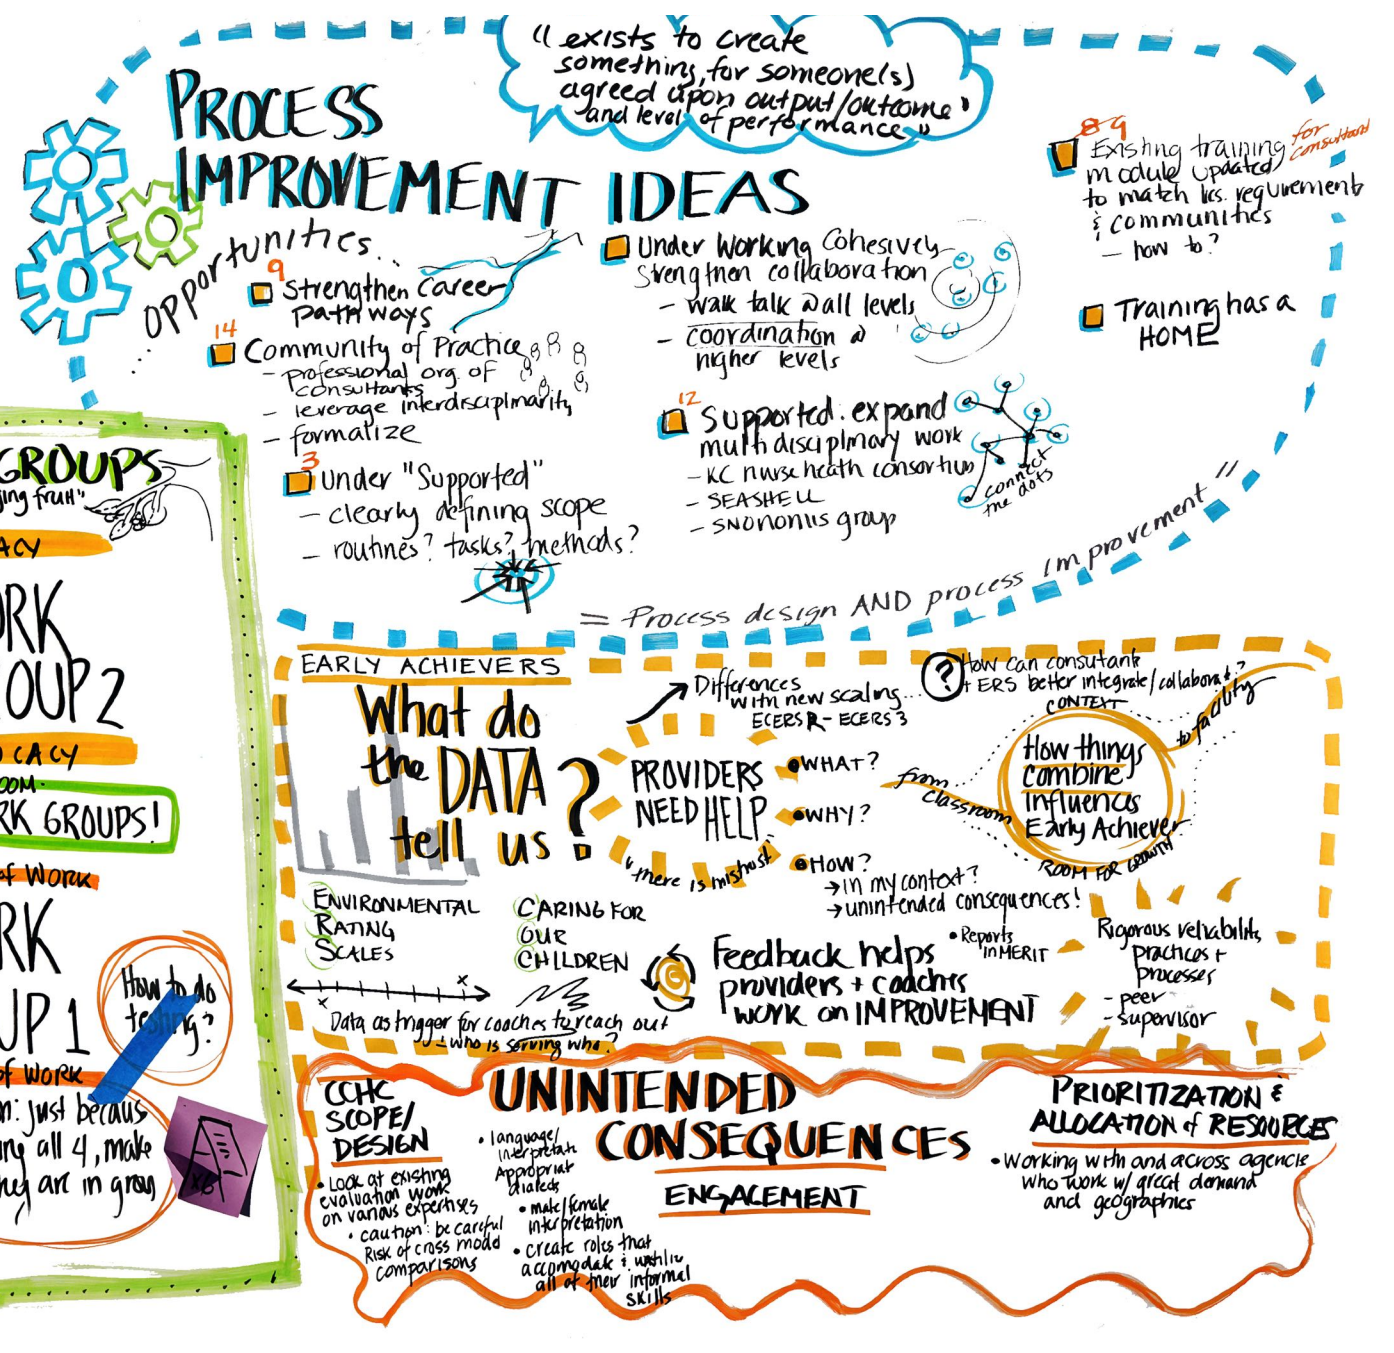 "exists to create
something, for someone(s)
agreed upon output/outcome
and level of performance"
PROCESS
IMPROVEMENT IDEAS
... opportunities...
9
Strengthen career
pathways
14
Community of Practice
- professional org. of
consultants
- leverage interdisciplinarity
- formalize
3
Under "Supported"
- clearly defining scope
- routines? tasks? methods?
Under Working Cohesively
Strengthen collaboration
- walk talk @ all levels
- coordination @
higher levels
12
Supported: expand
multidisciplinary work
- KC nurse heath consortium
- SEASHELL
- group
connect
the dots
8 9
Existing training for
consultant
module updated
to match lics. requirement
& communities
- how to?
Training has a
HOME
= Process design AND process improvement"
GROUPS
ging fruit"
ACY
ORK
OUP 2
OCACY
OOM.
RK GROUPS!
of WORK
RK
UP 1
of WORK
How to do
testing?
m: just becaus
ing all 4, make
they are in group
x6
EARLY ACHIEVERS
What do
the DATA
tell us?
ENVIRONMENTAL
RATING
SCALES
CARING FOR
OUR
CHILDREN
x x
Data as trigger for coaches to reach out
- who is serving who?
Differences
with new scaling...
ECERS R - ECERS 3
PROVIDERS
NEED HELP
"there is mistrust"
• WHAT?
• WHY?
• HOW?
→ in my context?
→ unintended consequences!
? How can consutant
+ ERS better integrate/collaborat?
CONTEXT
How things
Combine
influences
Early Achiever
ROOM FOR GROWTH
from
classroom
to facility
Feedback helps
providers + coaches
work on IMPROVEMENT
• Reports
in MERIT
Rigorous reliability
practices +
processes
- peer
- supervisor
CCHC
SCOPE/
DESIGN
• Look at existing
evaluation work
on various expertises
• caution: be careful
Risk of cross model
comparisons
UNINTENDED
CONSEQUENCES
ENGAGEMENT
• language/
interpretatn
Appropriat
dialects
• male/female
interpretation
• create roles that
accomodate &
all of their informal
skills
PRIORITIZATION &
ALLOCATION of RESOURCES
• Working with and across agencie
who work w/ great demand
and geographies